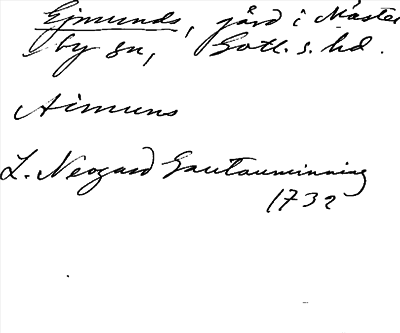 Ejmunds, gård i Mäster
by sn, Gotl. s. hd.
Aimuns
L. Neogard Gautauminning
1732